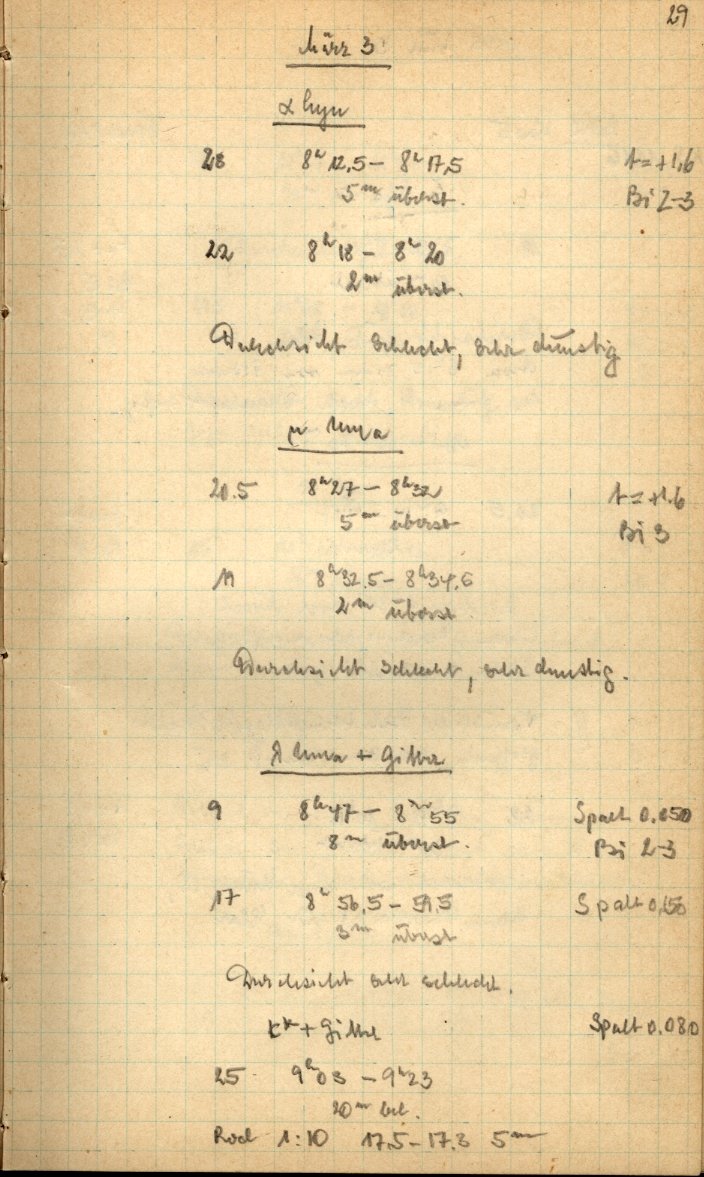 29
März 3
α Lyn
28 8ʰ 12,5 – 8ʰ 17,5 t = +1,6
5ᵐ überst. Bi 2-3
22 8ʰ 18 – 8ʰ 20
2ᵐ überst.
Durchsicht schlecht, sehr dunstig
μ Uma
20.5 8ʰ 27 – 8ʰ 32 t = +1.6
5ᵐ überst Bi 3
11 8ʰ 32.5 – 8ʰ 34.5
2ᵐ überst.
Durchsicht schlecht, sehr dunstig.
λ Uma + Gitter
9 8ʰ 47 – 8ᵐ 55 Spalt 0.050
8ᵐ überst. Bi 2-3
17 8ʰ 56,5 – 59,5 Spalt 0,050
3ᵐ überst
Durchsicht sehr schlecht.
+ Gitter Spalt 0.080
25 9ʰ 03 – 9ʰ 23
20ᵐ bel.
1:10 17.5 – 17.3 5ᵐ